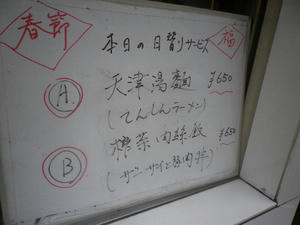 春節
本日の日替りサービス
福
A
天津湯麺 ¥650
(てんしんラーメン)
B
搾菜肉絲飯 ¥650
(ザーサイと豚肉丼)